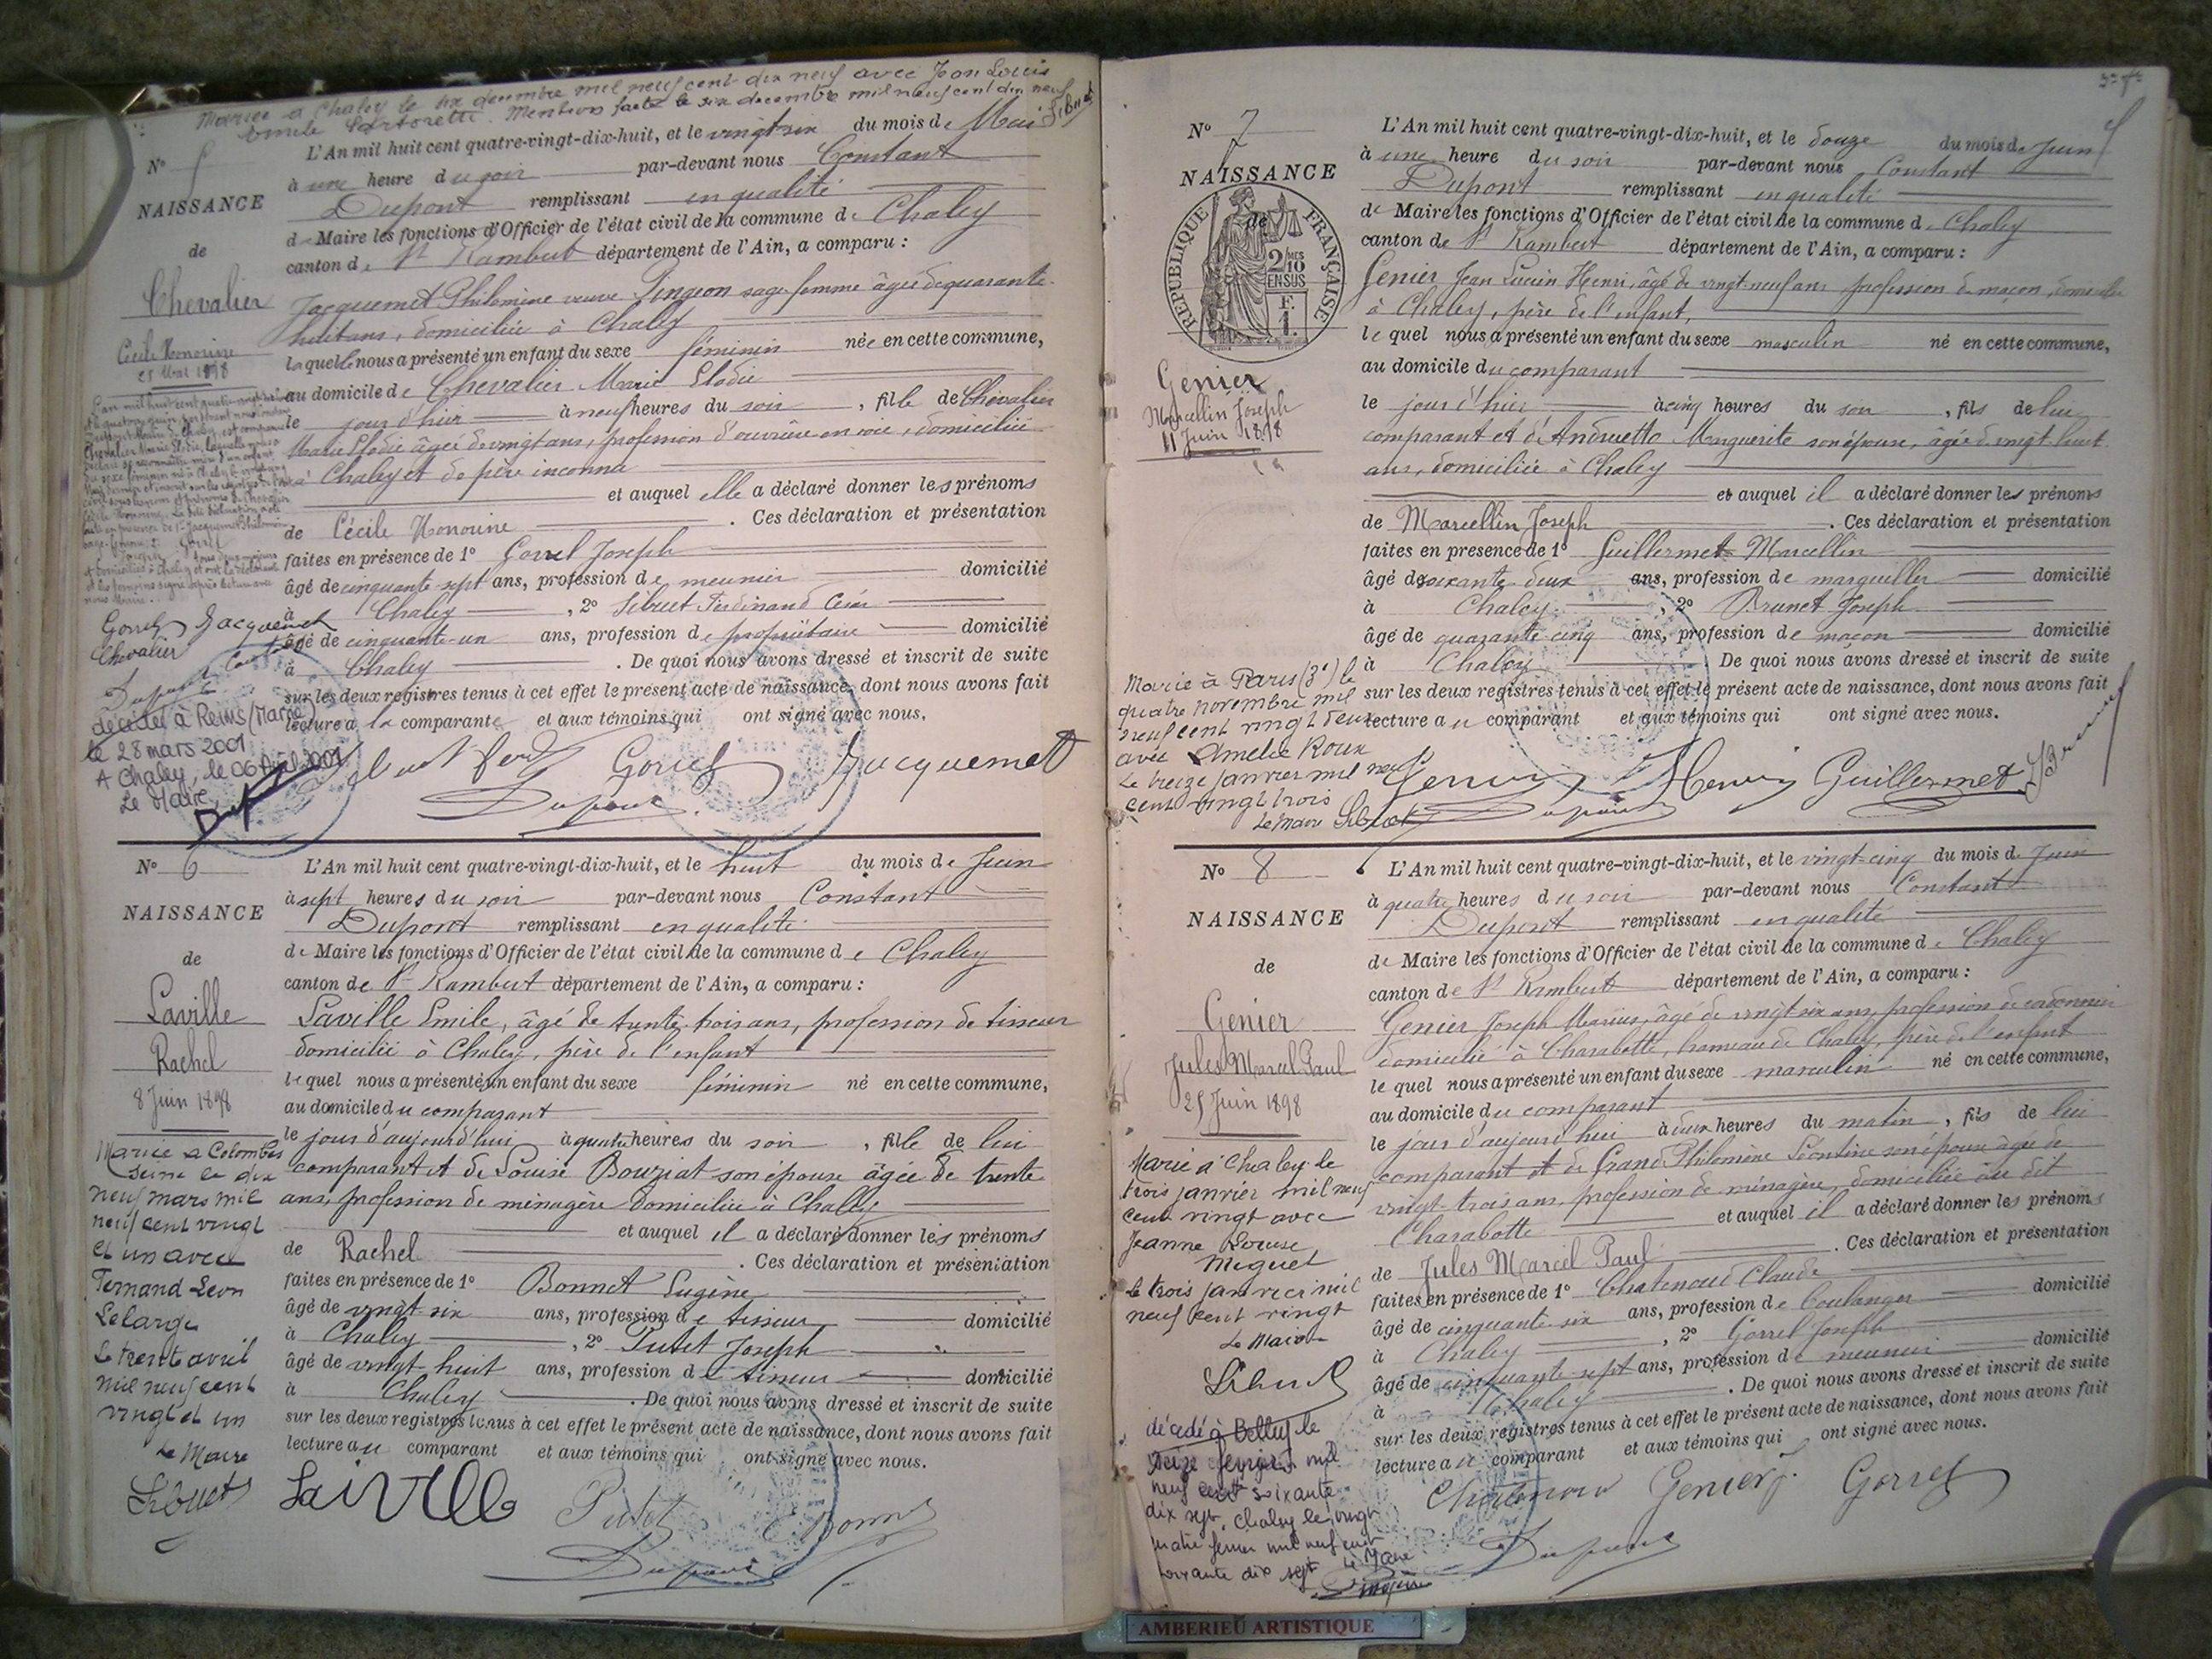 Mariée a Chaley le six decembre mil neuf cent dix neuf avec Jean Louis
Emile Sartoretti. Mention faite le six decembre mil neuf cent dix neuf
Sibuet
N° 5
NAISSANCE
de
Chevalier
Cécile Honorine
25 Mai 1898
L'An mil huit cent quatre-vingt-dix-huit, et le vingt six du mois de Mai
à une heure du soir par-devant nous Constant
Dupont remplissant en qualité
de Maire les fonctions d'Officier de l'état civil de la commune de Chaley
canton de St Rambert département de l'Ain, a comparu :
Jacquemet Philomène veuve Pingeon sage-femme âgée de quarante-
huit ans, domiciliée à Chaley
laquelle nous a présenté un enfant du sexe féminin née en cette commune,
au domicile de Chevalier Marie Elodie
le jour d'hier à neuf heures du soir, fille de Chevalier
Marie Elodie âgée de vingt ans, profession d'ouvrière en soie, domiciliée
à Chaley et de père inconnu
et auquel elle a déclaré donner les prénoms
de Cécile Honorine. Ces déclaration et présentation
faites en présence de 1° Gorrel Joseph
âgé de cinquante sept ans, profession de meunier domicilié
à Chaley, 2° Sibuet Ferdinand César
âgé de cinquante-un ans, profession de propriétaire domicilié
à Chaley. De quoi nous avons dressé et inscrit de suite
sur les deux registres tenus à cet effet le présent acte de naissance, dont nous avons fait
lecture a la comparante et aux témoins qui ont signé avec nous.
Gorrel Jacquemet
Chevalier
Dupont
décédée à Reims (Marne)
le 28 mars 2001
A Chaley, le 06 Avril 2001
Le Maire,
Gorrel Jacquemet
Dupont
N° 6
NAISSANCE
de
Laville
Rachel
8 Juin 1898
L'An mil huit cent quatre-vingt-dix-huit, et le huit du mois de Juin
à sept heures du soir par-devant nous Constant
Dupont remplissant en qualité
de Maire les fonctions d'Officier de l'état civil de la commune de Chaley
canton de St Rambert département de l'Ain, a comparu :
Laville Emile, âgé de trente trois ans, profession de tisseur
domicilié à Chaley, père de l'enfant
lequel nous a présenté un enfant du sexe féminin né en cette commune,
au domicile du comparant
le jour d'aujourd'hui à quatre heures du soir, fille de lui
comparant et de Louise Bouziat son épouse âgée de trente
ans, profession de ménagère domiciliée à Challey
et auquel il a déclaré donner les prénoms
de Rachel. Ces déclaration et présentation
faites en présence de 1° Bonnet Eugène
âgé de vingt-six ans, profession de tisseur domicilié
à Chaley, 2° Putet Joseph
âgé de vingt-huit ans, profession de tisseur domicilié
à Chaley. De quoi nous avons dressé et inscrit de suite
sur les deux registres tenus à cet effet le présent acte de naissance, dont nous avons fait
lecture au comparant et aux témoins qui ont signé avec nous.
Mariée a Colombes
seine le dix
neuf mars mil
neuf cent vingt
et un avec
Fernand Leon
Lelarge
Le trente avril
mil neuf cent
vingt et un
Le Maire
Sibuet
Laville Putet Bonnet
Dupont
N° 7
NAISSANCE
de
RÉPUBLIQUE FRANÇAISE
2/10MES
EN SUS
F.
1.
Genier
Marcellin Joseph
11 Juin 1898
L'An mil huit cent quatre-vingt-dix-huit, et le douze du mois de Juin
à une heure du soir par-devant nous Constant
Dupont remplissant en qualité
de Maire les fonctions d'Officier de l'état civil de la commune de Chaley
canton de St Rambert département de l'Ain, a comparu :
Genier, Jean Lucien Henri, âgé de vingt-neuf ans profession de maçon, domicilié
à Chaley, père de l'enfant,
lequel nous a présenté un enfant du sexe masculin né en cette commune,
au domicile du comparant
le jour d'hier à cinq heures du soir, fils de lui
comparant et d'Andruetto Marguerite son épouse, âgée de vingt-huit
ans, domiciliée à Chaley
et auquel il a déclaré donner les prénoms
de Marcellin Joseph. Ces déclaration et présentation
faites en présence de 1° Guillermet Marcellin
âgé de soixante-deux ans, profession de marguiller domicilié
à Chaley, 2° Brunet Joseph
âgé de quarante-cinq ans, profession de maçon domicilié
à Chaley De quoi nous avons dressé et inscrit de suite
sur les deux registres tenus à cet effet le présent acte de naissance, dont nous avons fait
lecture au comparant et aux témoins qui ont signé avec nous.
Marié à Paris (3e) le
quatre novembre mil
neuf cent vingt deux
avec Amelie Roux
Le treize janvier mil neuf
cent vingt trois
Le Maire Sibuet
Genier Henri Guillermet
Dupont
N° 8
NAISSANCE
de
Genier
Jules Marcel Paul
25 Juin 1898
L'An mil huit cent quatre-vingt-dix-huit, et le vingt-cinq du mois de Juin
à quatre heures du soir par-devant nous Constant
Dupont remplissant en qualité
de Maire les fonctions d'Officier de l'état civil de la commune de Chaley
canton de St Rambert département de l'Ain, a comparu :
Genier Joseph Marius, âgé de vingt-six ans, profession de cordonnier
domicilié à Charabotte, hameau de Chaley, père de l'enfant
lequel nous a présenté un enfant du sexe masculin né en cette commune,
au domicile du comparant
le jour d'aujourd'hui à deux heures du matin, fils de lui
comparant et de Grand Philomène Léontine son épouse âgée de
vingt-trois ans, profession de ménagère, domiciliée au dit
Charabotte et auquel il a déclaré donner les prénoms
de Jules Marcel Paul. Ces déclaration et présentation
faites en présence de 1° Chatenoud Claude
âgé de cinquante-six ans, profession de boulanger domicilié
à Chaley, 2° Gorrel Joseph
âgé de cinquante-sept ans, profession de meunier domicilié
à Chaley. De quoi nous avons dressé et inscrit de suite
sur les deux registres tenus à cet effet le présent acte de naissance, dont nous avons fait
lecture au comparant et aux témoins qui ont signé avec nous.
Marié à Chaley le
trois janvier mil neuf
cent vingt avec
Jeanne Louise
Miguet
Le trois janvier mil
neuf cent vingt
Le Maire
Sibuet
décédé à Belley le
seize février mil
neuf cent soixante
dix sept. Chaley le vingt
quatre février mil neuf cent
soixante dix sept Le Maire
Chatenoud Genier J. Gorrel
Dupont
AMBERIEU ARTISTIQUE